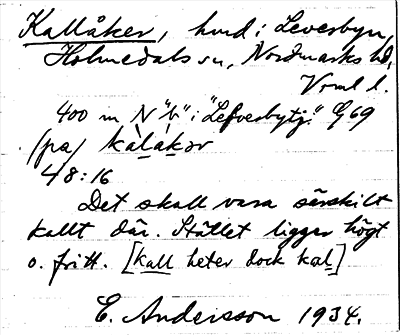 Kallåker, hmd i Leverbyn,
Holmedals sn, Nordmarks hd,
Vrml l.
400 m N "b" i "Lefverbytj." G69
(pa) kàlåkər
48:16
Det skall vara särskilt
kallt där. Stället ligger högt
o. fritt. [kall heter dock kal]
E. Andersson 1934.